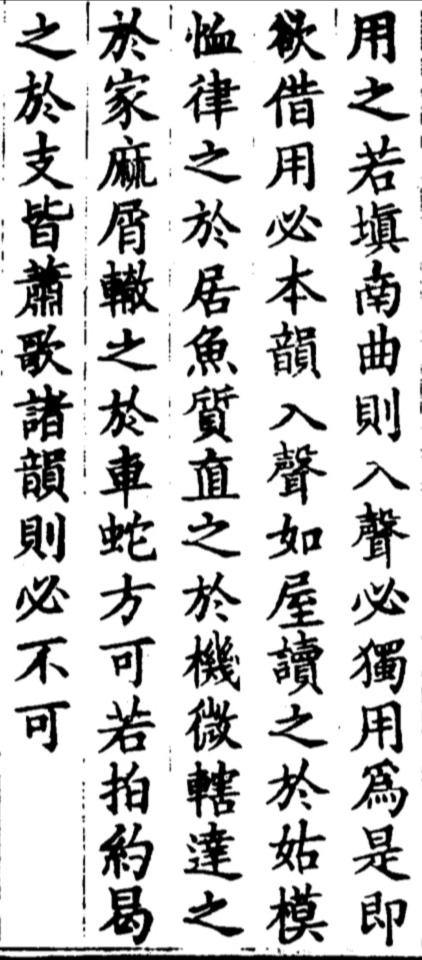 用之若塡南曲則入聲必獨用爲是即
欲借用必本韻入聲如屋讀之於姑模
恤律之於居魚質直之於機微轄達之
於家麻屑轍之於車蛇方可若拍約曷
之於支皆蕭歌諸韻則必不可